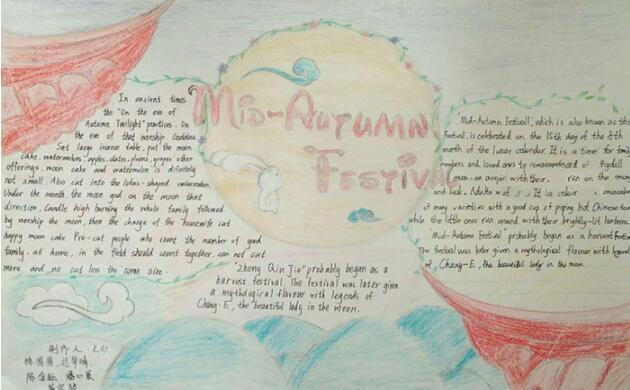 Mid-Autumn
Festival
In ancient times
the "On the eve of
Autumn Twilight" practices. On
the eve of that worship Goddess.
Set large incense table, put the moon
cake, watermelons, apples, dates, plums, grapes other
offerings, moon cake and watermelon is definitely
not small. Also cut into the lotus-shaped watermelon.
Under the month the moon god on the moon that
direction, Candle high burning the whole family followed
by worship the moon, then the charge of the housewife cut
happy moon cake Pre-cut people who count the number of good
family. at home, in the field should count together, can not cut
more and no cut less the same size.
"Zhong Qiu Jie" probably began as a
harvest festival. The festival was later given
a mythological flavour with legends of
Chang-E, the beautiful lady in the moon.
"Mid-Autumn Festival", which is also known as the
Festival, is celebrated on the 15th day of the 8th
month of the lunar calendar. It is a time for family
members and loved ones to
moon-an with their. run on the moon
and luck. Adults
of many varieties with a good cup of piping hot Chinese tea
while the little ones run around with their brightly-lit lanterns.
"Mid-Autumn Festival" probably began as a harvest festival
The festival was later given a mythological flavour with legends
of Chang-E, the beautiful lady in the moon.
制作人